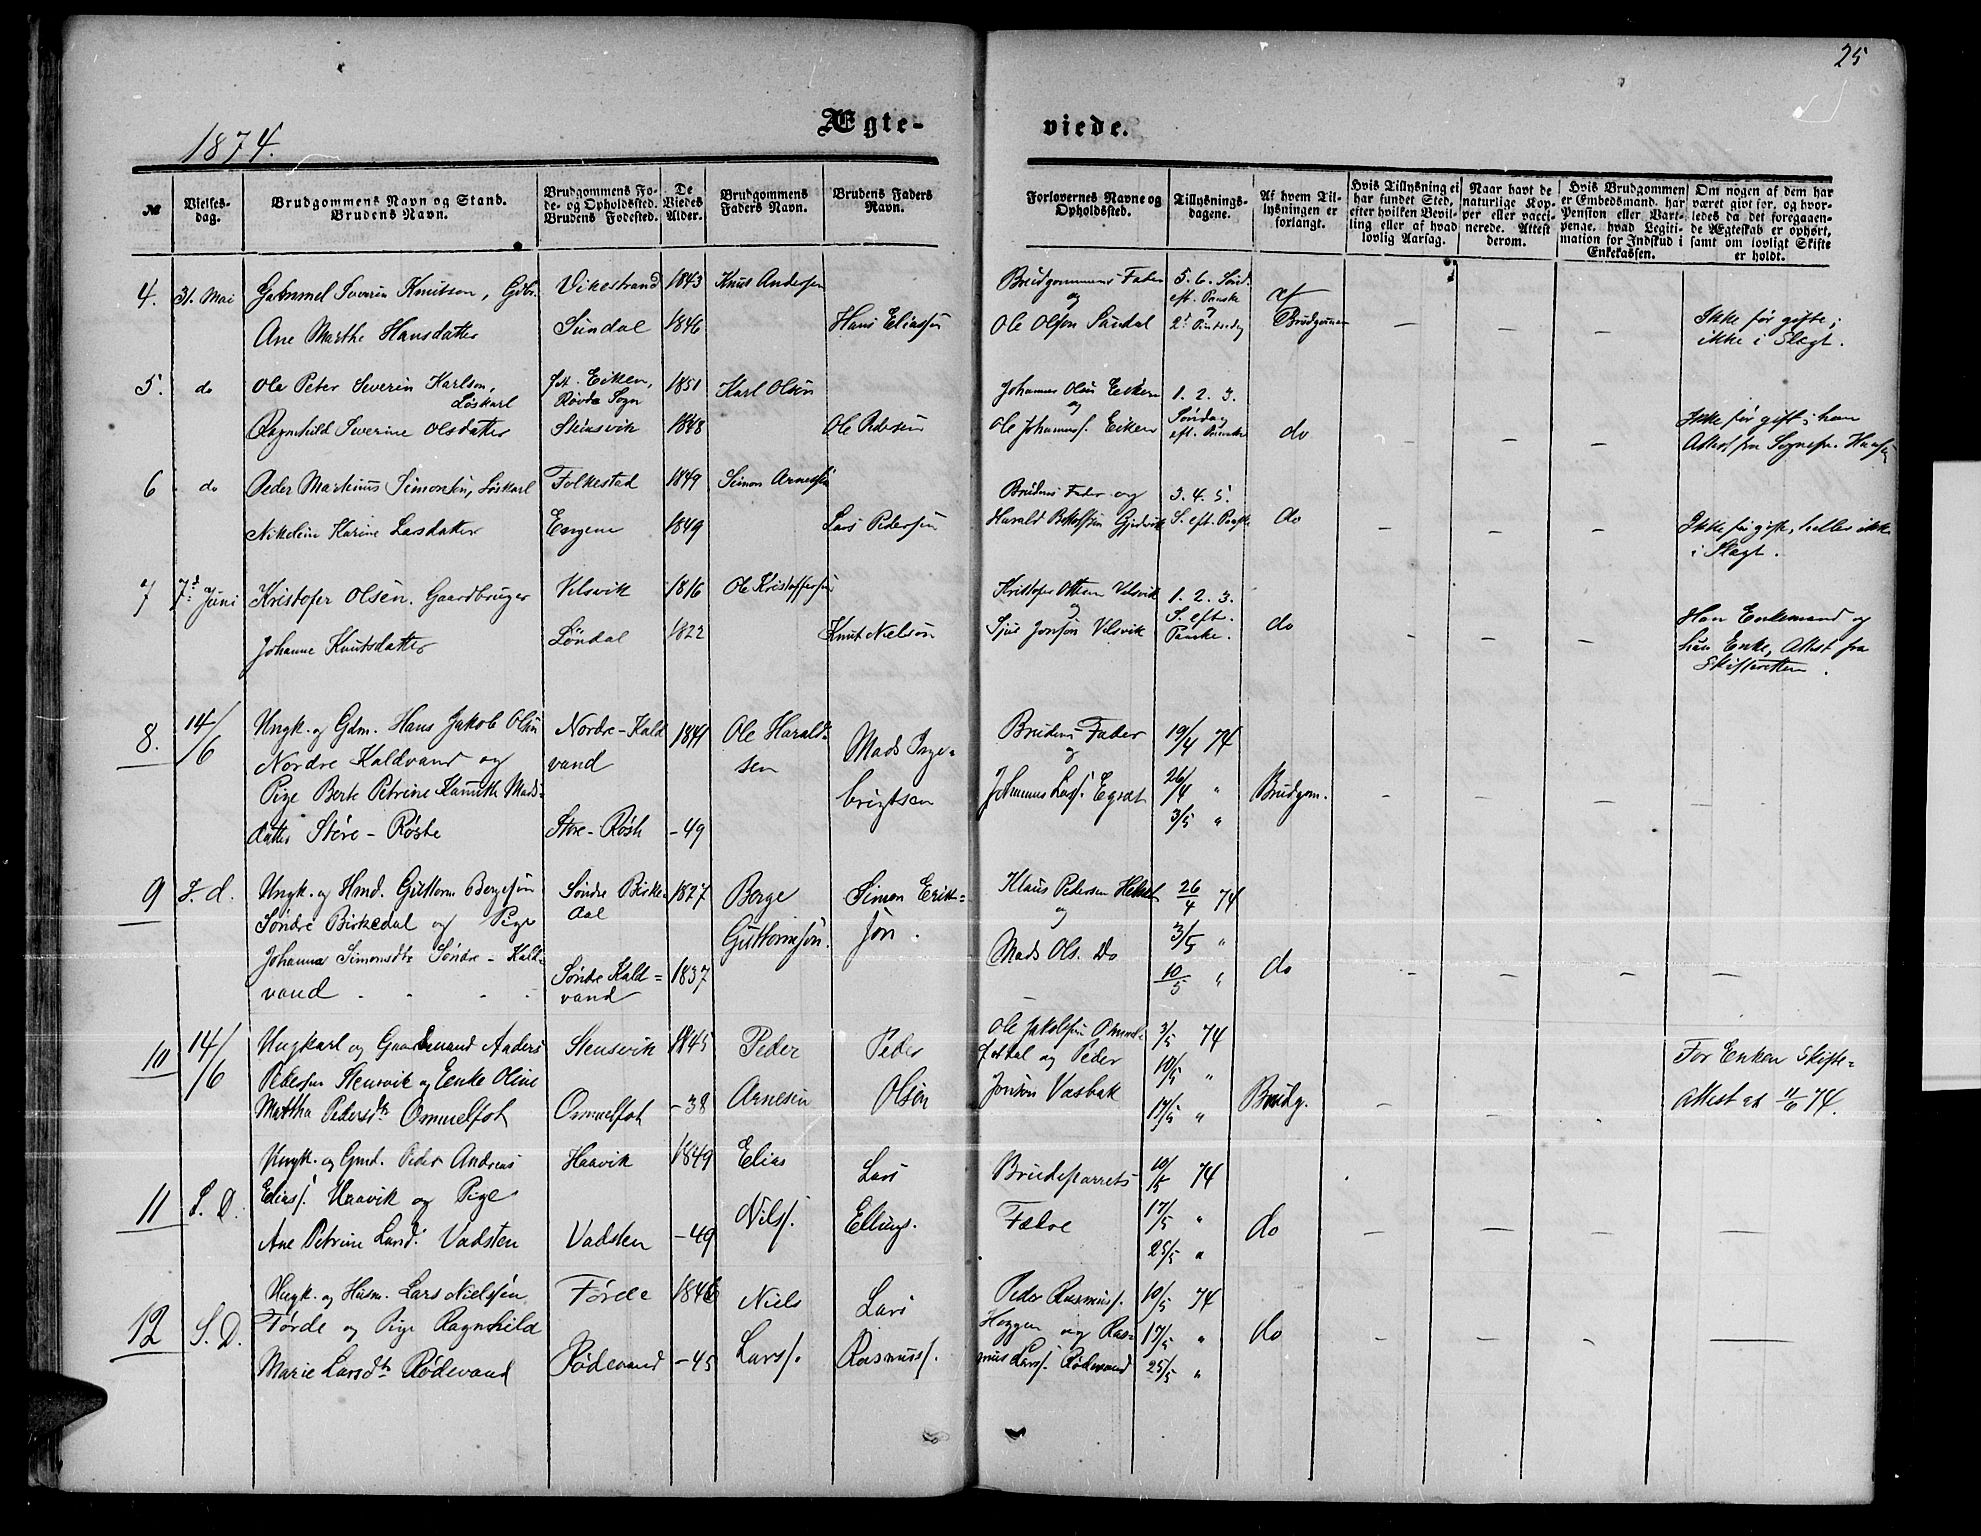 25
1874.
Ægte-
viede.
№
Vielses-
dag.
Brudgommens Navn og Stand.
Brudens Navn.
Brudgommens Fø-
de- og Opholdssted.
Brudens Fødested.
De
Viedes
Alder.
Brudgommens
Faders Navn.
Brudens Faders
Navn.
Forlovernes Navne og
Opholdssted.
Tillysnings-
dagene.
Af hvem Til-
lysningen er
forlangt.
Hvis Tillysning ei
har fundet Sted,
efter hvilken Bevil-
ling eller af hvad
lovlig Aarsag.
Naar havt de
naturlige Kop-
per eller vacci-
nerede. Attest
derom.
Hvis Brudgommen
er Embedsmand, har
Pension eller Vart-
penge, hvad Legiti-
mation for Indskud i
Enkekassen.
Om nogen af dem har
været givt før, og hvor-
ledes da det foregaaen-
de Ægteskab er ophørt,
samt om lovligt Skifte
er holdt.
4. 31. Mai Gammel Severin Knutson, Gbr. Vikestrand 1843 Knut Andersen Brudgommens Fader 5. 6. Sønd.
og eft. Paaske af
Ane Marthe Hansdatter Sundal 1846 Hans Eliassen Ole Olsen Sundal Brudgommen — — — Ikke før gifte;
ikke i Slægt.
5. do Ole Peter Severin Karlson, Fst. Eiken, 1851 Karl Olsen Johannes Olsen Eiken 1. 2. 3.
Løskarl Røvde Sogn og Søndag
Ragnhild Severine Olsdatter Stensvik 1848 Ole Pedersen Ole Johanness. Eiken eft. Paaske do — — — Ikke før gift; han
Attest fra Sognepr.
6 do Peder Martinus Simonsen, Løskarl Folkestad 1849 Simon Arnesen Brudens Fader og 3. 4. 5.
Nikoline Karine Larsdatter Engene 1849 Lars Pedersen Harald S. eft. Paaske do — — — Ikke før gifte, heller ikke
i Slægt.
7 7d Juni Kristofer Olsen. Gaardbruger Velsvik 1816 Ole Kristoffersen Kristofer Velsvik 1. 2. 3.
og S. eft.
Johanne Knutsdatter Løndal 1822 Knut Nielsen Sjur Jonson Velsvik Paaske. do — — — Han Enkemand og
hun Enke, Attest fra
Skifteretten.
8. 14/6 Ungk. og Gdm. Hans Jakob Olsen Nordre-Kald 1841 Ole Harald- Mads Inge- Brudens Fader 19/4 74
Nordre Kaldvand og vand sen brigtsen og 26/4 "
Pige Berte Petrine Mads- Johannes Egset Brudgom. — — — —
datter Store-Røste Store-Røste -49 3/5 "
9 S. d. Ungk. og Hmd. Guttorm Børgesen Søndre Birke- 1827 Børge Simon Erik- Klaus Pedersen 26/4 74
Søndre Birkedal og Pige dal Guttormsøn. søn. og 3/5 "
Johanna Simonsdtr Søndre-Kald- Søndre Kald- 1837 Mads Ols. Do 10/5 " do — — — —
vand vand
10 14/6 Ungkarl og Gaardmand Anders Stensvik 1845 Peder Peder Ole Jakobsen Ommel- 3/5 74 For Enken Skifte-
Pedersen Stensvik og Enke Oline Arnesen Olsen og Peder 10/5 "
Martha Pedersdtr Ommelfot Ommelfot -38 Jonsen Vasbak 17/5 " Brudg. — — — Attest af 11/6 74.
11 S. D. Ungk. og Gmd. Peder Andreas Haavik 1849 Elias Lars Brudeparrets 10/5 74
Eliass. Haavik og Pige Nils. Ellings. Fædre 17/5 " do — — — —
Ane Petrine Larsd. Vadsten Vadsten -49 25/5 "
12 S. D. Ungk. og Husm. Lars Nielsen Førde 1846 Niels Lars Peder Rasmuss. 10/5 74
Førde og Pige Ragnhild Larss. Rasmuss. Heggen og Ras- 17/5 " do — — — —
Marie Larsdtr Rødevand Rødevand -45 mus Larss. Rødevand 25/5 "